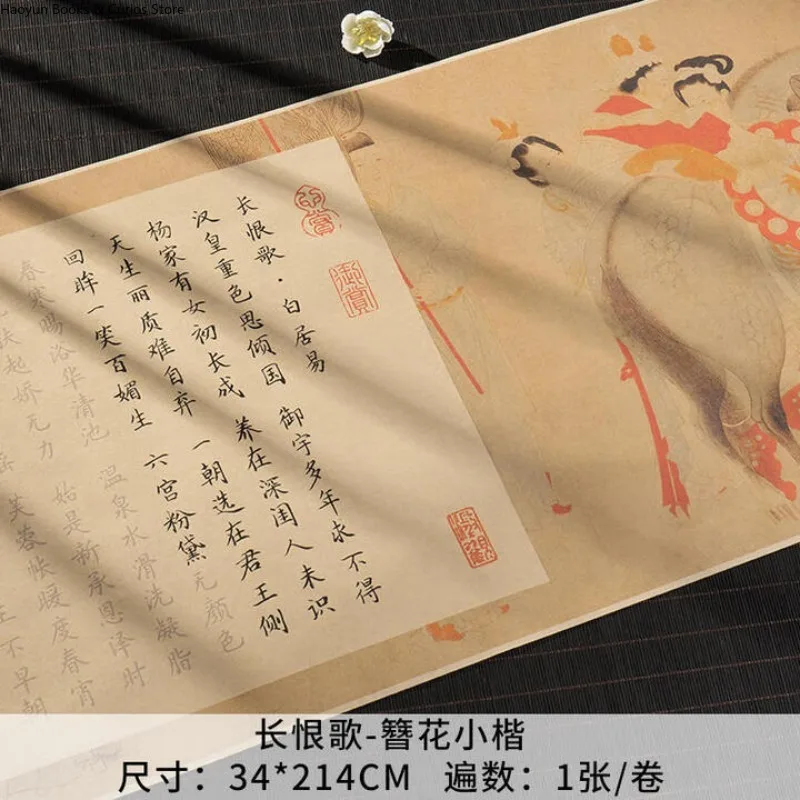 Haoyun Books & Curios Store
长恨歌·白居易
汉皇重色思倾国 御宇多年求不得
杨家有女初长成 养在深闺人未识
天生丽质难自弃 一朝选在君王侧
回眸一笑百媚生 六宫粉黛无颜色
春寒赐浴华清池 温泉水滑洗凝脂
扶起娇无力 始是新承恩泽时
摇 芙蓉帐暖度春宵
王不早朝
御赏
长恨歌-簪花小楷
尺寸：34*214CM 遍数：1张/卷